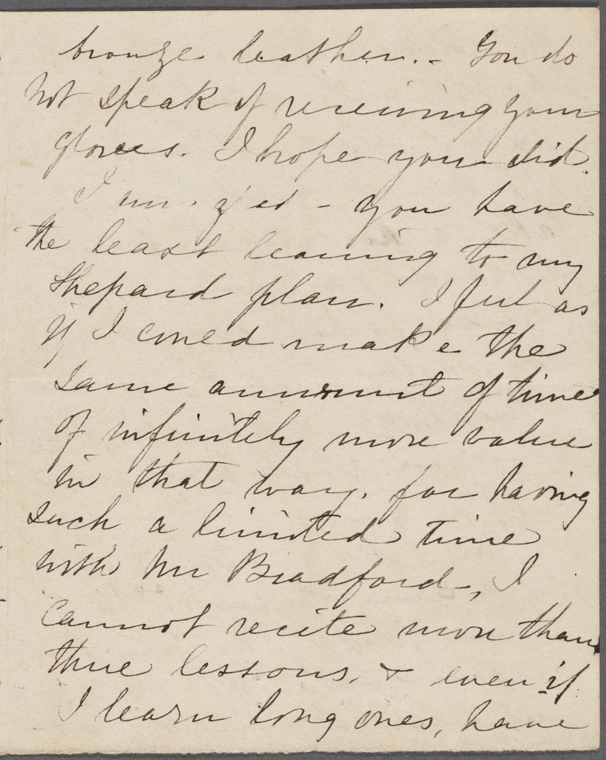 bronze leather. - You do
not speak of receiving your
gloves. I hope you did.
I am glad - you have
the least leaning to my
Shepard plan. I feel as
if I could make the
same amount of time
of infinitely more value
in that way. for having
such a limited time
with Mr Bradford, I
cannot recite more than
three lessons, & even if
I learn long ones, have